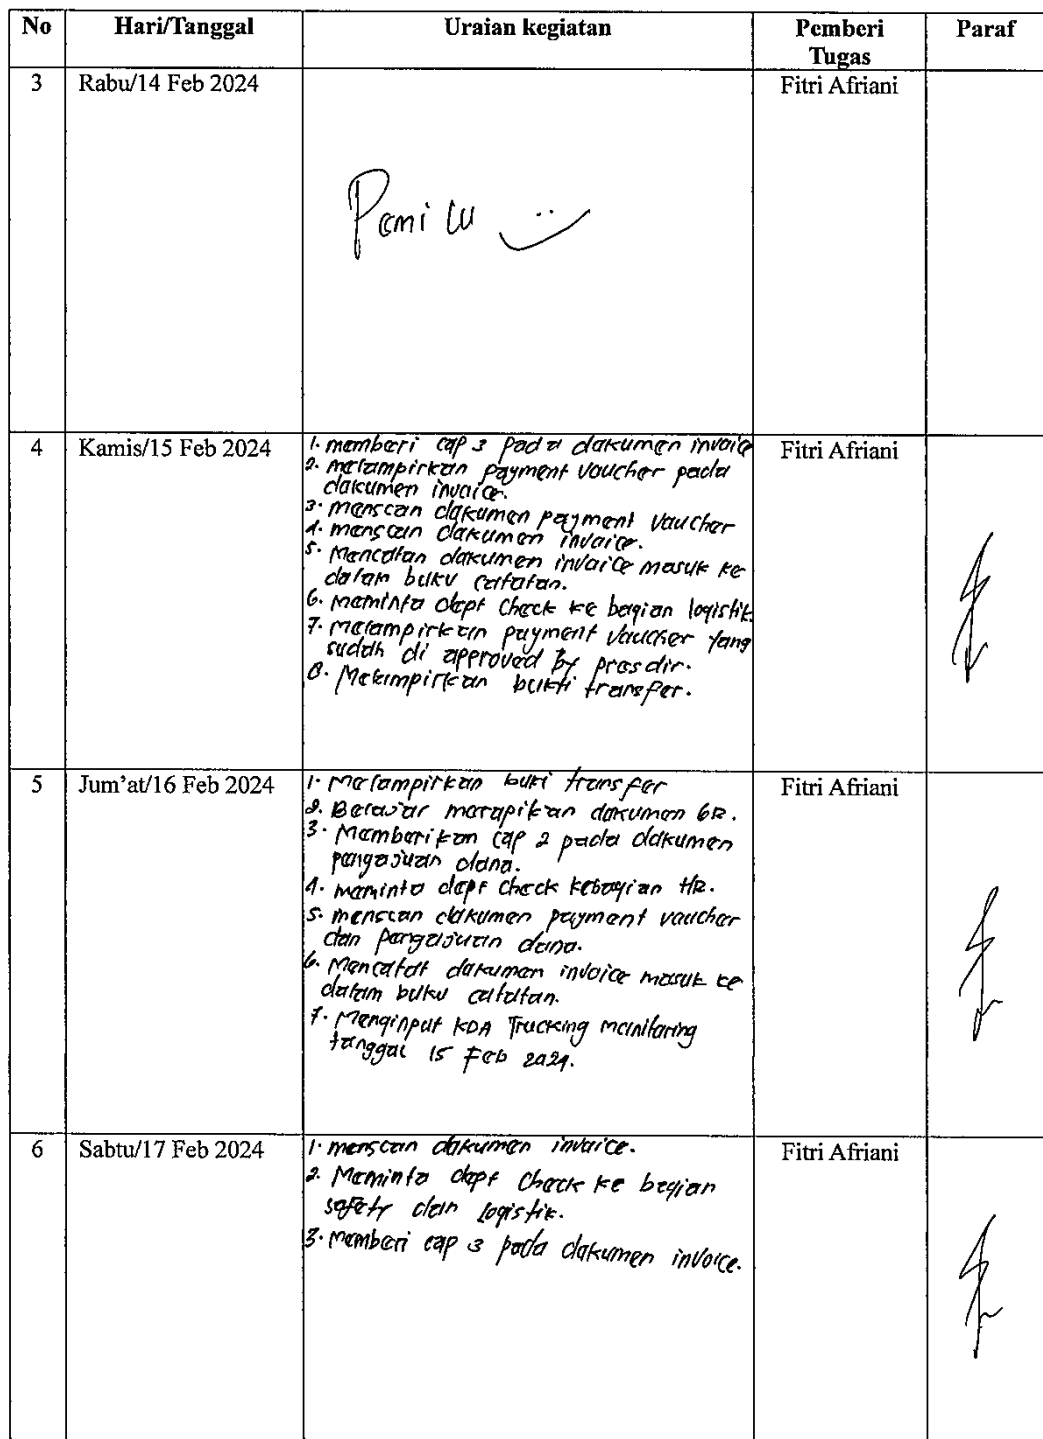 No Hari/Tanggal Uraian kegiatan Pemberi Tugas Paraf
3 Rabu/14 Feb 2024 Fitri Afriani
Pemilu
4 Kamis/15 Feb 2024 Fitri Afriani
1. memberi cap 3 pada dokumen invoice
2. melampirkan payment voucher pada
dokumen invoice.
3. menscan dokumen payment voucher
4. menscan dokumen invoice.
5. Mencatan dokumen invoice masuk ke
dalam buku catatan.
6. meminta dept check ke bagian logistik.
7. melampirkan payment voucher yang
sudah di approved by presdir.
8. Melampirkan bukti transfer.
5 Jum'at/16 Feb 2024 Fitri Afriani
1. Melampirkan buki transfer
2. Belajar merapikan dokumen GR.
3. Memberikan cap 2 pada dokumen
pengajuan dana.
4. meminta dept check kebagian HR.
5. menscan dokumen payment voucher
dan pengajuan dana.
6. Mencatat dokumen invoice masuk ke
dalam buku catatan.
7. Menginput KDA Trucking monitoring
tanggal 15 Feb 2024.
6 Sabtu/17 Feb 2024 Fitri Afriani
1. menscan dokumen invoice.
2. Meminta dept check ke bagian
safety dan logistik.
3. memberi cap 3 pada dokumen invoice.